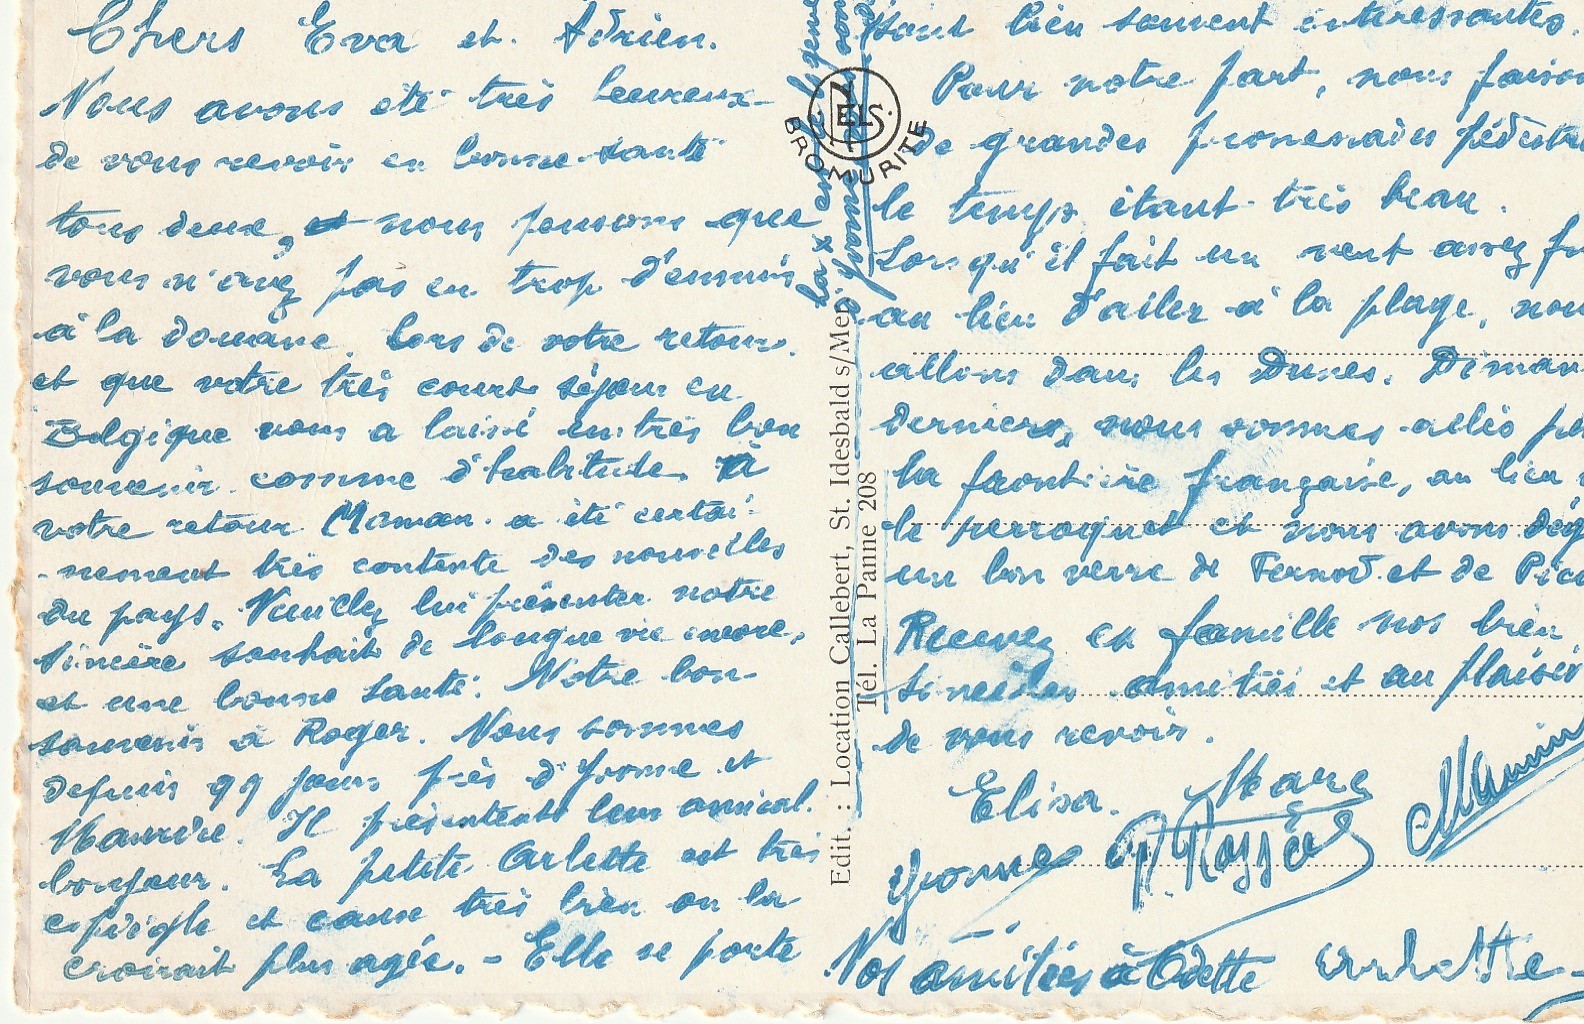 Chers Eva et Adrien.
Nous avons été très heureux
de vous revoir en bonne santé
tous deux, nous pensons que
vous n'avez pas eu trop d'ennuis
à la douane. Lors de votre retour.
et que votre très court séjour en
Belgique vous a laissé un très bon
souvenir comme d'habitude. A
votre retour Maman a été certai-
nement très contente des nouvelles
du pays. Veuillez lui présenter notre
sincère souhait de longue vie encore,
et une bonne santé. Notre bon
souvenir à Roger. Nous sommes
depuis jours près d'Yvonne et
Maurice. Il présentent leur amical
bonjour. La petite Arlette est très
espiègle et cause très bien on la
croirait plus agée. - Elle se porte
BELS
BROMURITE
Edit. : Location Callebert, St. Idesbald s/Mer.
Tél. La Panne 208
sont bien souvent intéressantes.
Pour notre part, nous faison
de grandes promenades pédestre
le temps étant très beau.
Lorsqu'il fait un vent assez
au lieu d'aller à la plage, nou
allons dans les Dunes. Diman
dernier, nous sommes allés
la frontière française, au lieu
le perroquet et nous avons dég
un bon verre de Pernod et de
Recevez en famille nos bien
sincères amitiés et au plaisir
de vous revoir.
Elisa. Marc
Yvonne
Nos amitiés à Odette Arlette